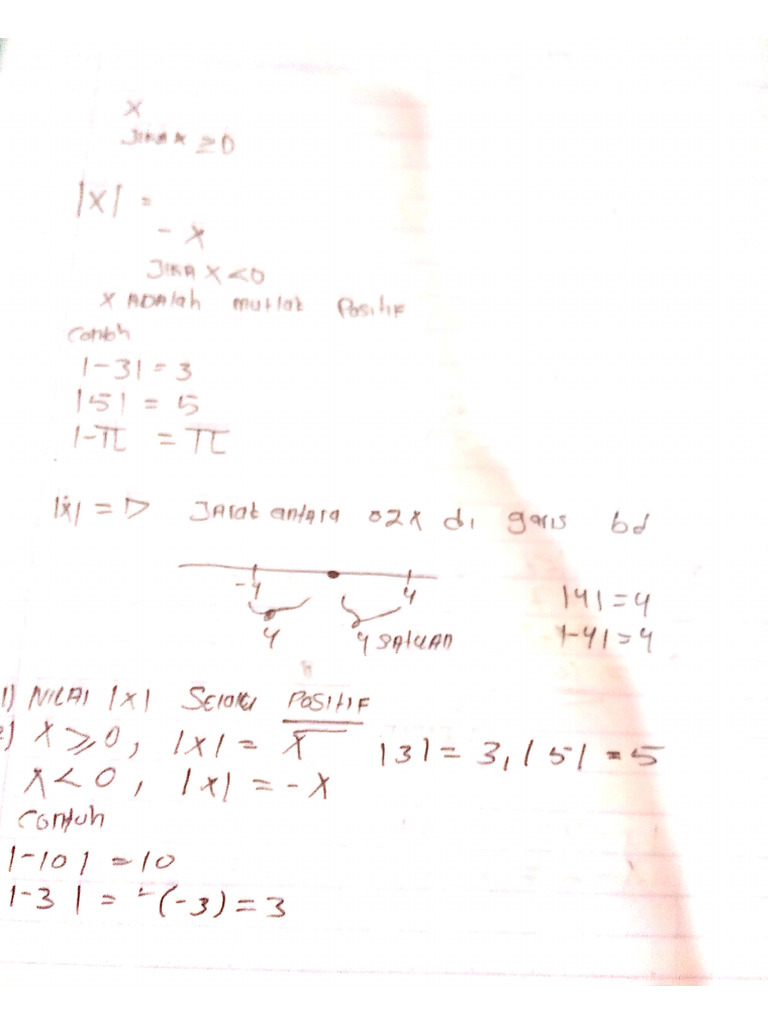 x
JIKA x ≥ 0
|x| =
- x
JIKA x < 0
x ADAlah mutlak Positif
Contoh
|-3| = 3
|5| = 5
|-π = π
|x| = D Jarak antara 02x di garis bd
-4 4
4 4 SATUAN
|4| = 4
|-4| = 4
1) NILAI |x| Selalu POSITIF
2) x ≥ 0, |x| = x |3| = 3, |5| = 5
x < 0, |x| = -x
Contuh
|-10| = 10
|-3| = -(-3) = 3